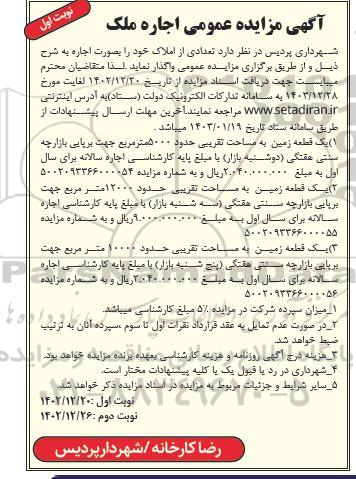 نوبت اول
آگهی مزایده عمومی اجاره ملک
شهرداری پردیس در نظر دارد تعدادی از املاک خود را بصورت اجاره به شرح
ذیل و از طریق برگزاری مزایده عمومی واگذار نماید .لذا متقاضیان محترم
میبایست جهت دریافت اسناد مزایده از تاریخ ۱۴۰۲/۱۲/۲۰ لغایت مورخ
۱۴۰۳/۱۲/۲۸ به سامانه تدارکات الکترونیک دولت (ستاد)به آدرس اینترنتی
www.setadiran.ir مراجعه نمایند.آخرین مهلت ارسال پیشنهادات از
طریق سامانه ستاد تاریخ ۱۴۰۳/۰۱/۱۹ میباشد .
۱)یک قطعه زمین به مساحت تقریبی حدود ۵۰۰۰مترمربع جهت برپایی بازارچه
سنتی هفتگی (دوشنبه بازار) با مبلغ پایه کارشناسی اجاره سالانه برای سال
اول به مبلغ ۲.۰۴۰.۰۰۰.۰۰۰ریال و به شماره مزایده ۵۰۰۲۰۹۳۳۶۶۰۰۰۰۵۴
۲)یک قطعه زمین به مساحت تقریبی حدود ۱۲۰۰۰متر مربع جهت
برپایی بازارچه سنتی هفتگی (سه شنبه بازار) با مبلغ پایه کارشناسی اجاره
سالانه برای سال اول به مبلغ ۹.۰۰۰.۰۰۰.۰۰۰ریال و به شماره مزایده
۵۰۰۲۰۹۳۳۶۶۰۰۰۰۵۵
۳)یک قطعه زمین به مساحت تقریبی حدود ۱۰۰۰۰ متر مربع جهت
برپایی بازارچه سنتی هفتگی (پنج شنبه بازار) با مبلغ پایه کارشناسی اجاره
سالانه برای سال اول به مبلغ ۲.۰۴۰.۰۰۰.۰۰۰ریال و به شماره مزایده
۵۰۰۲۰۹۳۳۶۶۰۰۰۰۵۶
۱_میزان سپرده شرکت در مزایده ۵٪ مبلغ کارشناسی میباشد.
۲_در صورت عدم تمایل به عقد قرارداد نفرات اول تا سوم ،سپرده آنان به ترتیب
ضبط خواهد شد.
۳_هزینه درج آگهی روزنامه و هزینه کارشناسی بعهده برنده مزایده خواهد بود.
۴_شهرداری در رد یا قبول یک یا کلیه پیشنهادات مختار است.
۵_سایر شرایط و جزئیات مربوط به مزایده در اسناد مزایده ذکر خواهد شد.
نوبت اول :۱۴۰۲/۱۲/۲۰
نوبت دوم :۱۴۰۲/۱۲/۲۶
رضا کارخانه/شهردارپردیس